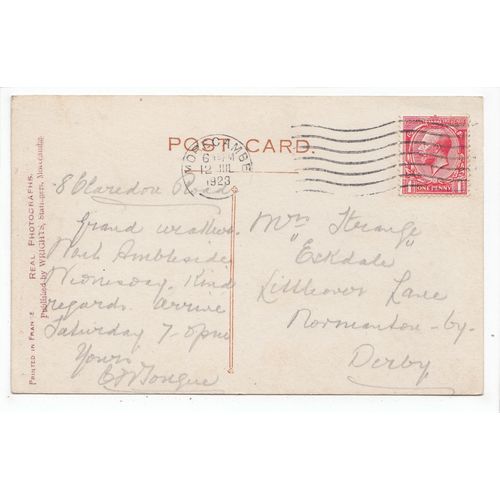 POST CARD.
MORECAMBE
6 PM
12 JUL
1923
ONE PENNY
8 Claredon Road
Grand weather.
Wednesday. Kind
regards. arrive
Saturday 7-0pm
Yours
Mrs Strange
"Eckdale"
Littleover Lane
Normanton-by-
Derby
PRINTED IN FRANCE
REAL PHOTOGRAPHS.
Published by WRIGHTS, Stationers, Morecambe